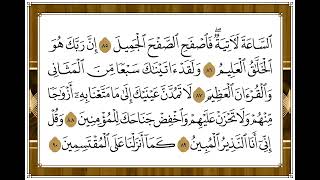 ٱلسَّاعَةَ لَأٓتِيَةٌۖ فَٱصۡفَحِ ٱلصَّفۡحَ ٱلۡجَمِيلَ ٨٥ إِنَّ رَبَّكَ هُوَ
ٱلۡخَلَّٰقُ ٱلۡعَلِيمُ ٨٦ وَلَقَدۡ ءَاتَيۡنَٰكَ سَبۡعٗا مِّنَ ٱلۡمَثَانِي
وَٱلۡقُرۡءَانَ ٱلۡعَظِيمَ ٨٧ لَا تَمُدَّنَّ عَيۡنَيۡكَ إِلَىٰ مَا مَتَّعۡنَا بِهِۦٓ أَزۡوَٰجٗا
مِّنۡهُمۡ وَلَا تَحۡزَنۡ عَلَيۡهِمۡ وَٱخۡفِضۡ جَنَاحَكَ لِلۡمُؤۡمِنِينَ ٨٨ وَقُلۡ
إِنِّيٓ أَنَا ٱلنَّذِيرُ ٱلۡمُبِينُ ٨٩ كَمَآ أَنزَلۡنَا عَلَى ٱلۡمُقۡتَسِمِينَ ٩٠